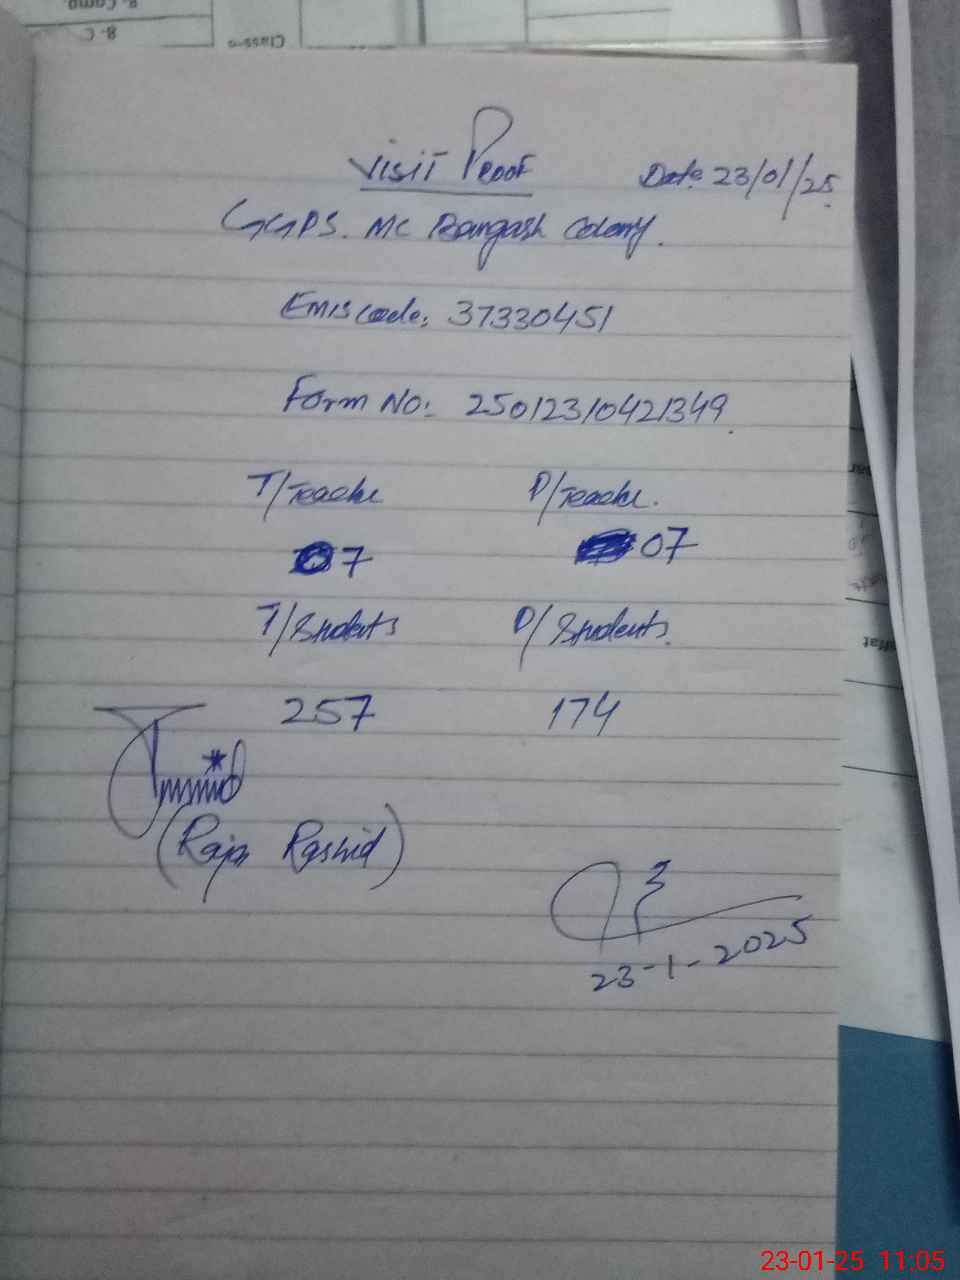 Visit Proof
Date: 23/01/25
GGPS. MC Bangash Colony.
EMIS code: 37330451
Form No: 25012310421349
T/Teacher
P/Teacher.
7
07
T/Students
P/Students.
257
174
(Raja Rashid)
23-1-2025
23-01-25 11:05